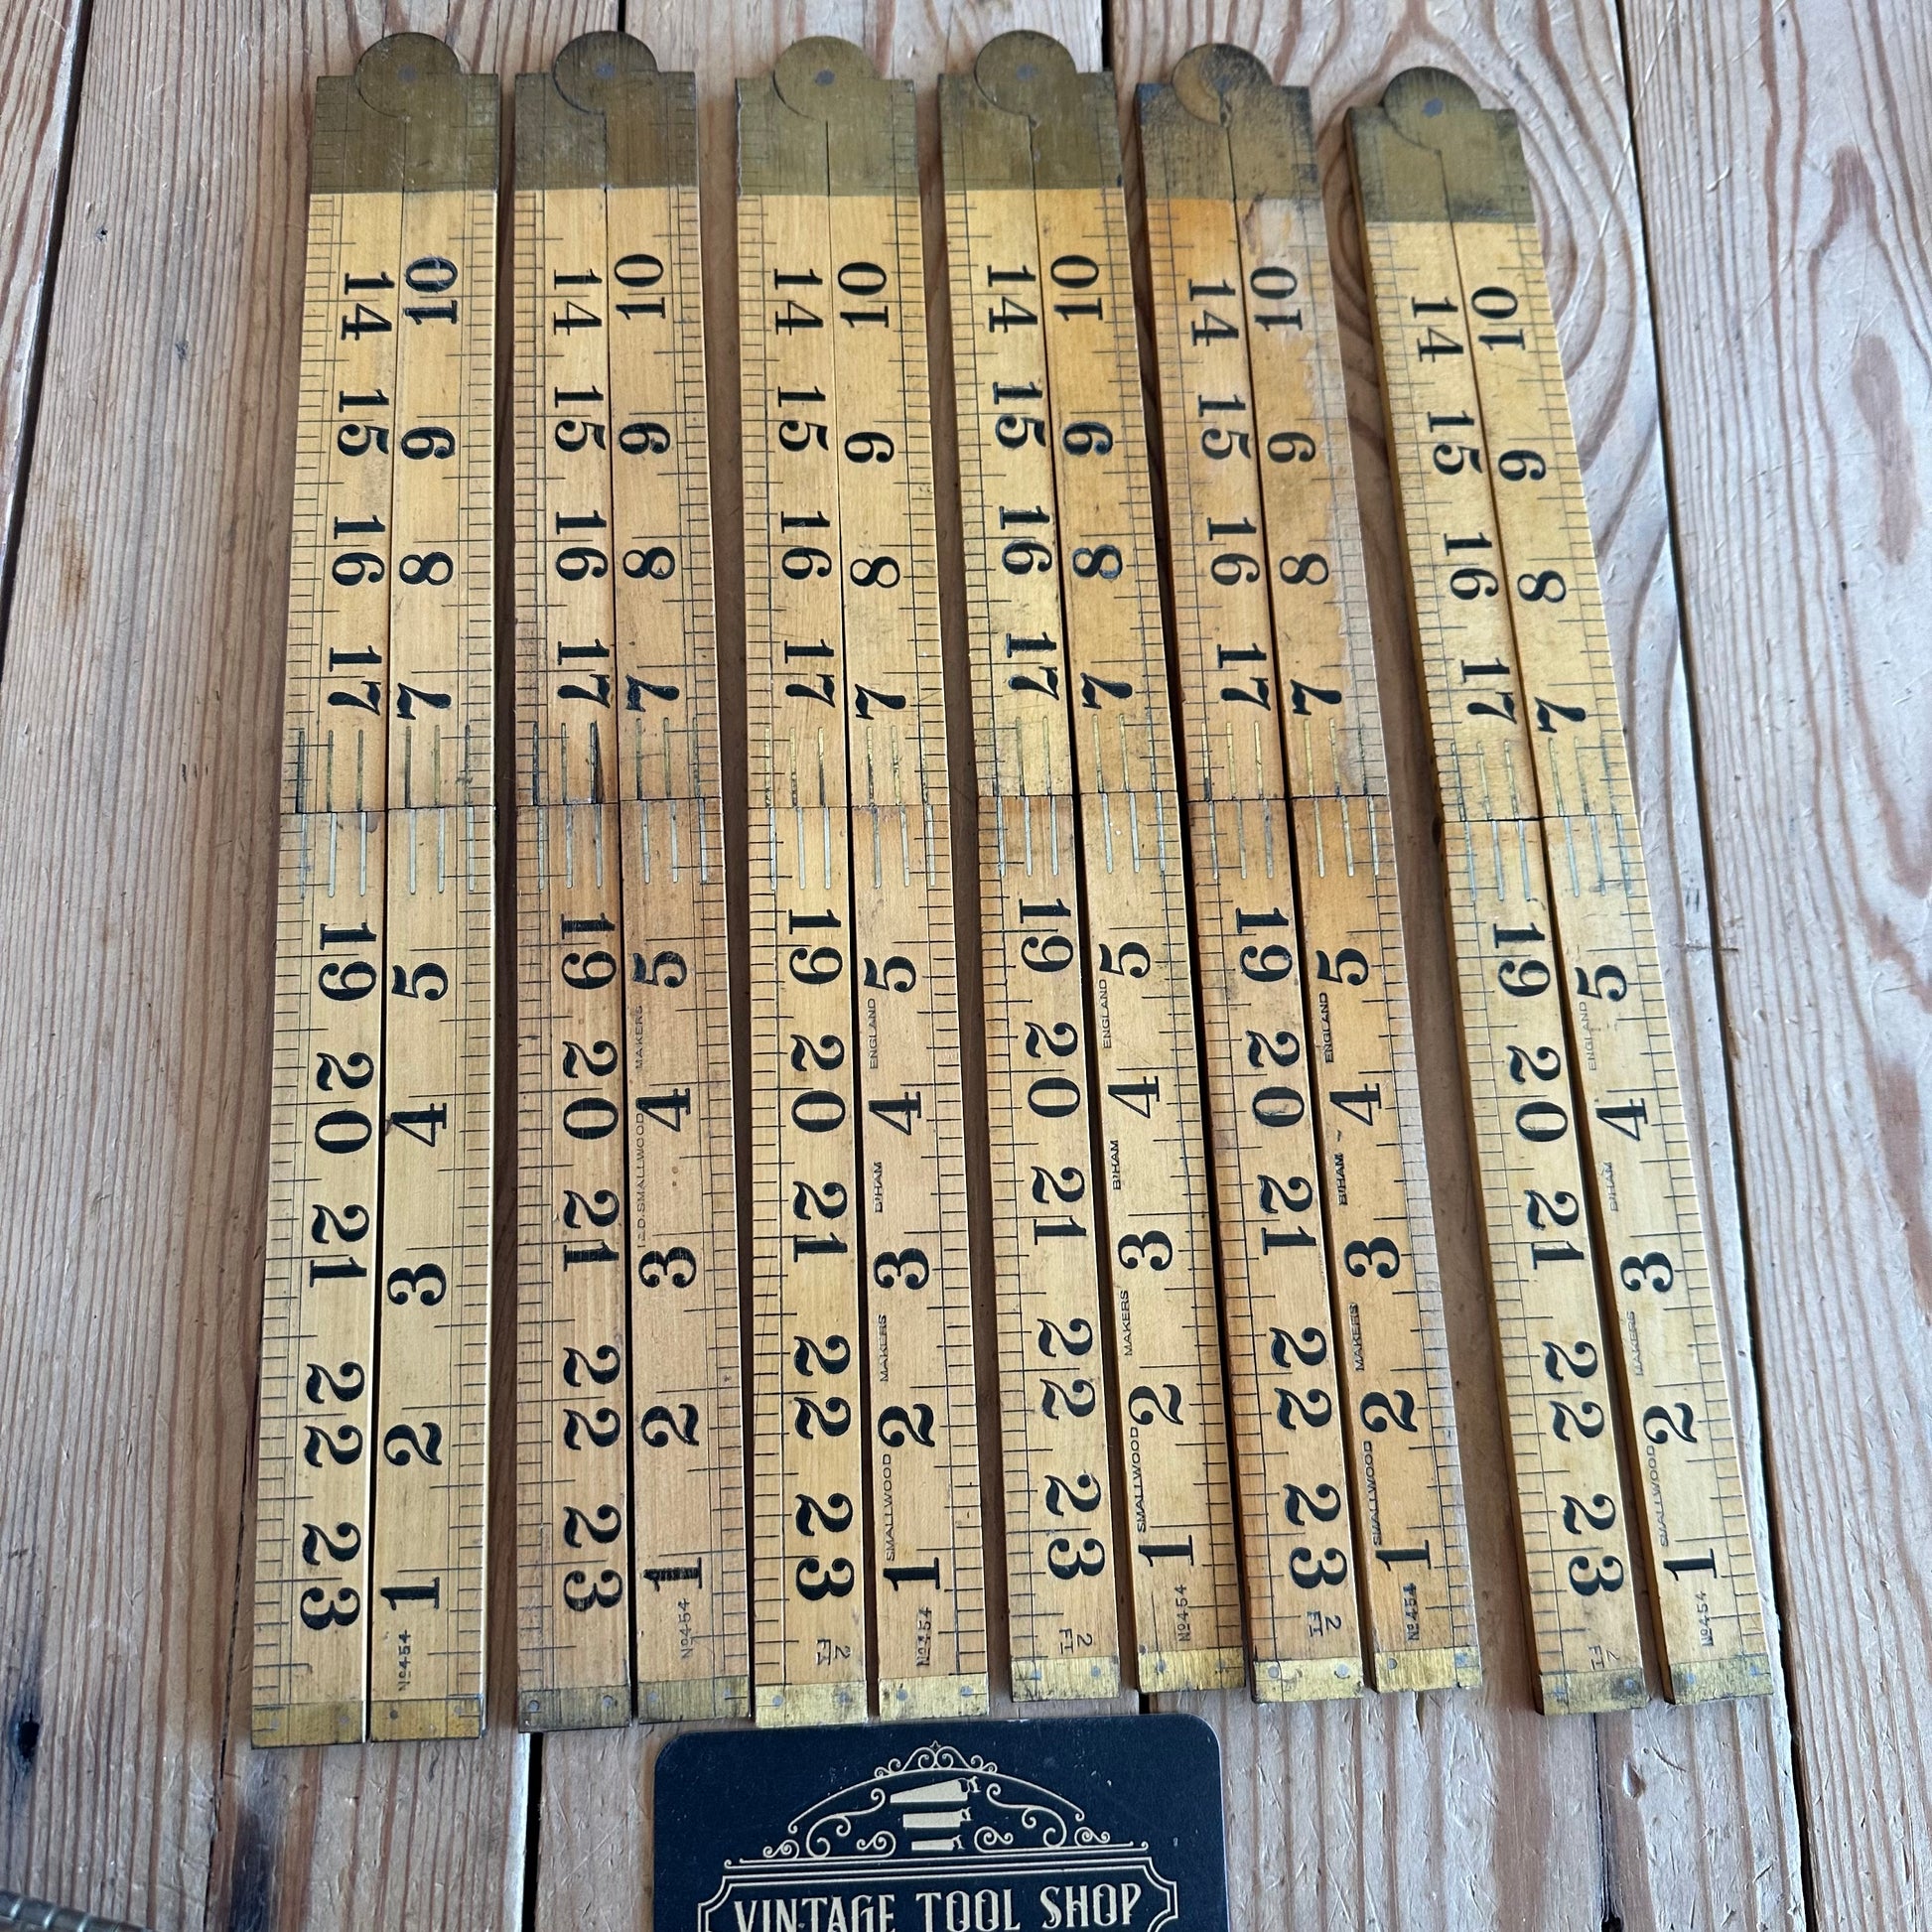 14 15 16 17 19 20 21 22 23
10 9 8 7 5 4 3 2 1 Nº454
14 15 16 17 19 20 21 22 23
10 9 8 7 5 4 3 2 1 Nº454
SMALLWOOD MAKERS
14 15 16 17 19 20 21 22 23 2 FT
10 9 8 7 5 4 3 2 1 Nº454
SMALLWOOD MAKERS B'HAM ENGLAND
14 15 16 17 19 20 21 22 23 2 FT
10 9 8 7 5 4 3 2 1 Nº454
SMALLWOOD MAKERS B'HAM ENGLAND
14 15 16 17 19 20 21 22 23 2 FT
10 9 8 7 5 4 3 2 1 Nº454
SMALLWOOD MAKERS B'HAM ENGLAND
14 15 16 17 19 20 21 22 23 2 FT
10 9 8 7 5 4 3 2 1 Nº454
SMALLWOOD MAKERS B'HAM ENGLAND
VINTAGE TOOL SHOP